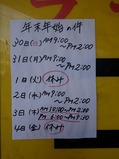 年末年始の件
30日(日)AM9:00
～PM2:00
31日(月)AM9:00
～PM2:00
1日(火)休み
2日(水)AM9:00
～PM2:00
3日(木)AM10:00～PM2:00
PM6:00～AM9:00
4日(金)休み